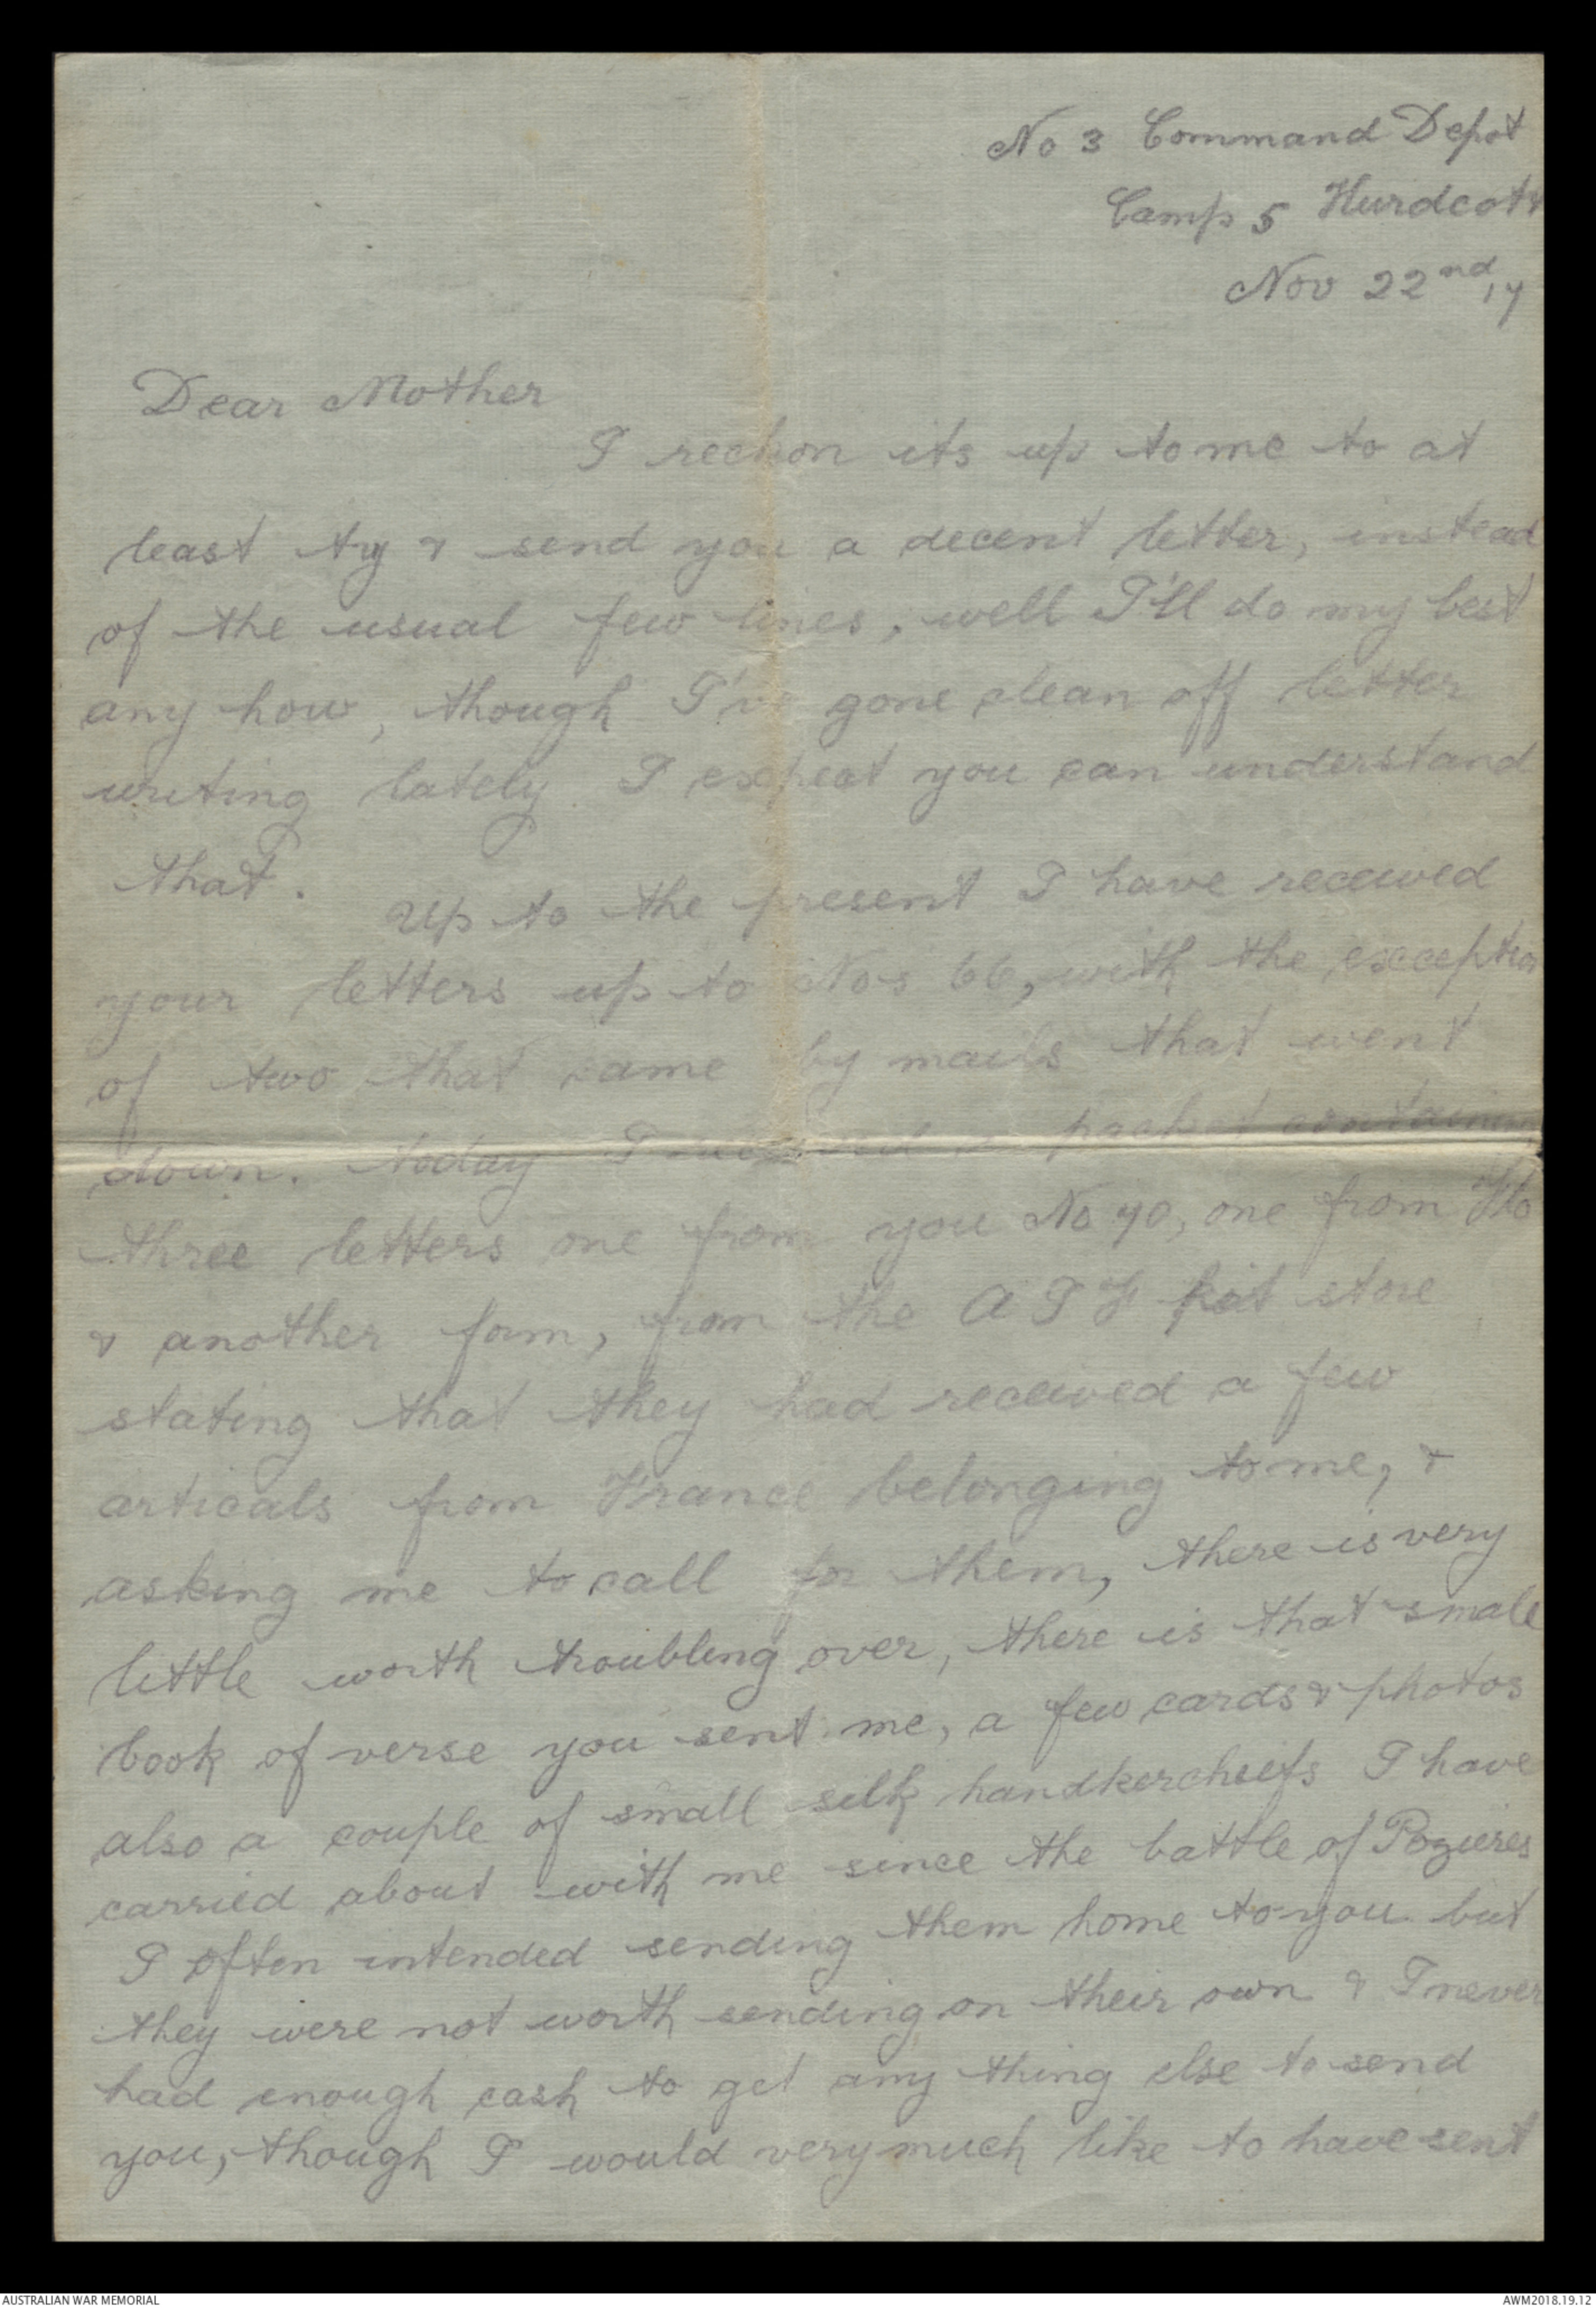 No 3 Command Depot
Camp 5 Hurdcott
Nov 22nd, 17
Dear Mother
I reckon its up to me to at
least try & send you a decent letter, instead
of the usual few lines, well I'll do my best
any how, though I've gone clean off letter
writing lately. I expect you can understand
that. Up to the present I have received
your letters up to Nos 66, with the exception
of two that came by mails that went
down. Today I received a packet containing
three letters one from you No 70, one from Flo
& another form, from the A I F kit store
stating that they had received a few
articals from France belonging to me, &
asking me to call for them, there is very
little worth troubling over, there is that small
book of verse you sent me, a few cards & photos
also a couple of small silk handkercheifs I have
carried about with me since the battle of Pozieres
I often intended sending them home to you but
they were not worth sending on their own & I never
had enough cash to get any thing else to send
you, though I would very much like to have sent
AUSTRALIAN WAR MEMORIAL
AWM2018.19.12